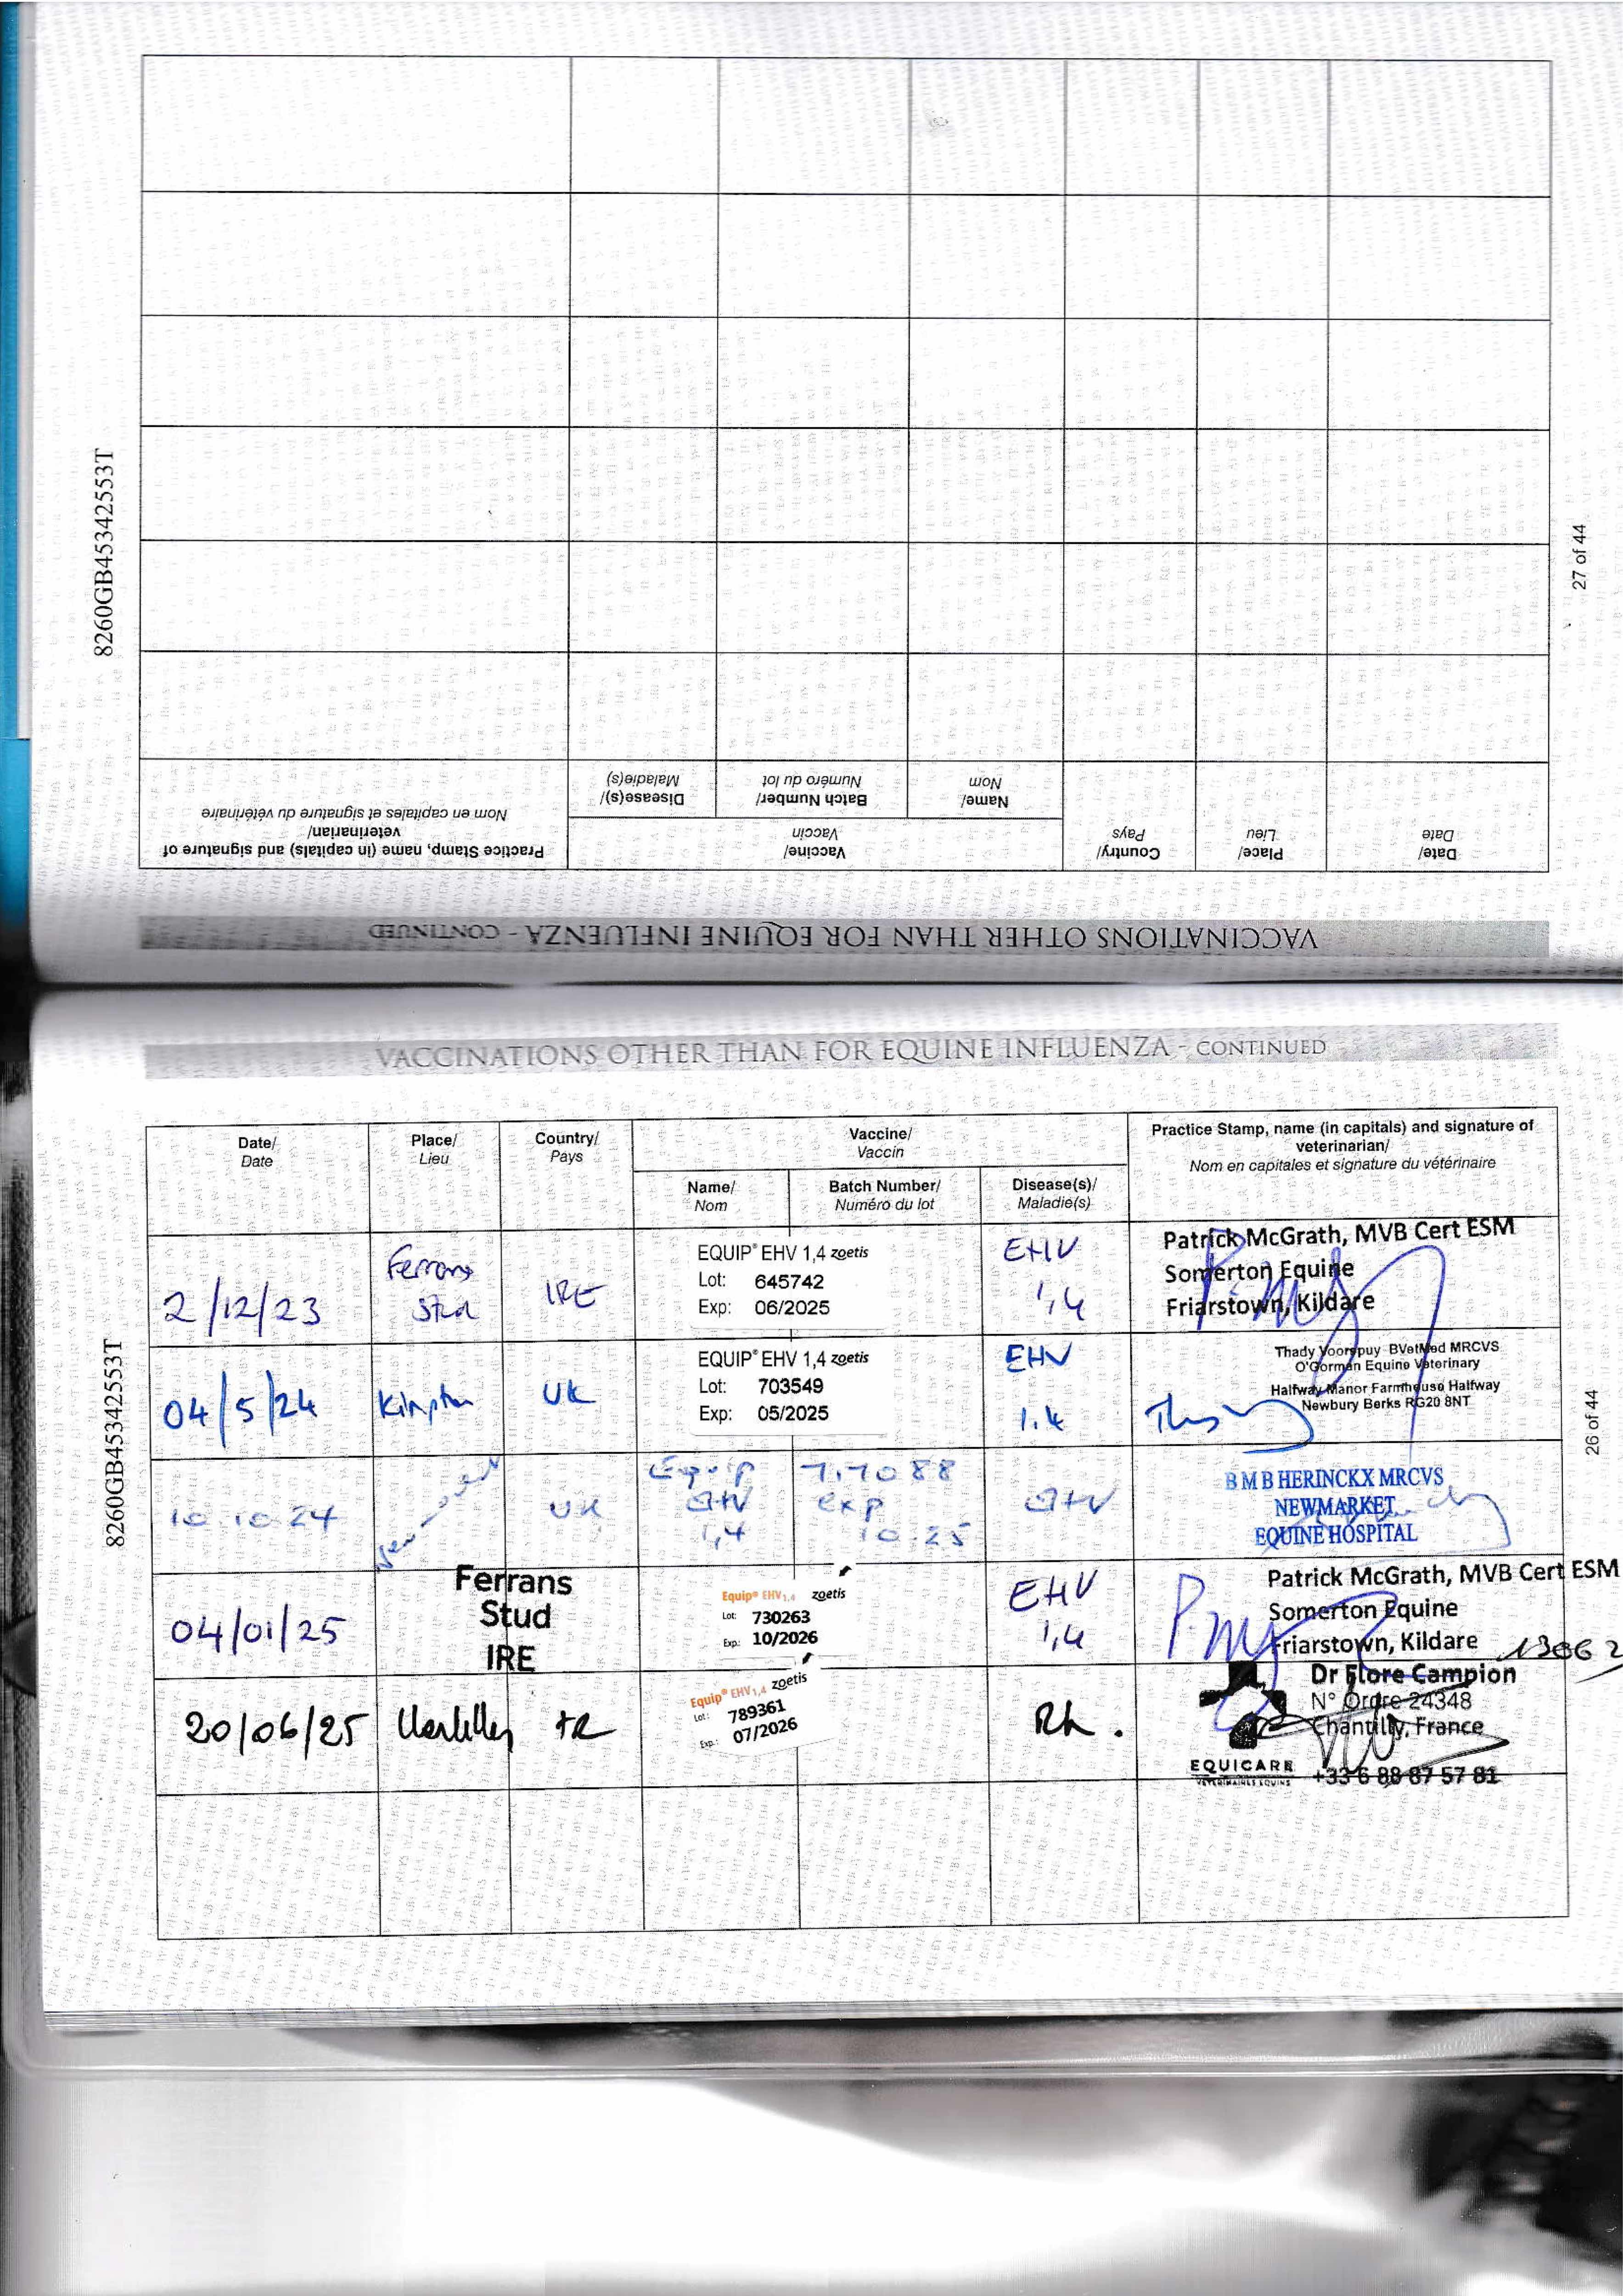 8260GB45342553T
27 of 44
VACCINATIONS OTHER THAN FOR EQUINE INFLUENZA - CONTINUED
Date/
Date
Place/
Lieu
Country/
Pays
Vaccine/
Vaccin
Name/
Nom
Batch Number/
Numéro du lot
Disease(s)/
Maladie(s)
Practice Stamp, name (in capitals) and signature of
veterinarian/
Nom en capitales et signature du vétérinaire
VACCINATIONS OTHER THAN FOR EQUINE INFLUENZA - CONTINUED
8260GB45342553T
26 of 44
Date/
Date
Place/
Lieu
Country/
Pays
Vaccine/
Vaccin
Name/
Nom
Batch Number/
Numéro du lot
Disease(s)/
Maladie(s)
Practice Stamp, name (in capitals) and signature of
veterinarian/
Nom en capitales et signature du vétérinaire
2/12/23
Ferrans
Stud
IRE
EQUIP® EHV 1,4 zoetis
Lot: 645742
Exp: 06/2025
EHV
1,4
Patrick McGrath, MVB Cert ESM
Somerton Equine
Friarstown, Kildare
04/5/24
UK
EQUIP® EHV 1,4 zoetis
Lot: 703549
Exp: 05/2025
EHV
1.4
Thady Voorspuy BVetMed MRCVS
O'Gorman Equine Veterinary
Halfway Manor Farmhouse Halfway
Newbury Berks RG20 8NT
10.10.24
UK
Equip
EHV
1,4
exp
10.25
EHV
B M B HERINCKX MRCVS
NEWMARKET
EQUINE HOSPITAL
04/01/25
Ferrans
Stud
IRE
Equip® EHV 1,4 zoetis
Lot: 730263
Exp.: 10/2026
EHV
1,4
Patrick McGrath, MVB Cert ESM
Somerton Equine
Friarstown, Kildare
20/06/25
FR
Equip® EHV 1,4 zoetis
Lot: 789361
Exp.: 07/2026
Rh.
Dr Flore Campion
N° Ordre 24348
Chantilly, France
EQUICARE
VETERINAIRES EQUINS
+33 6 88 87 57 81